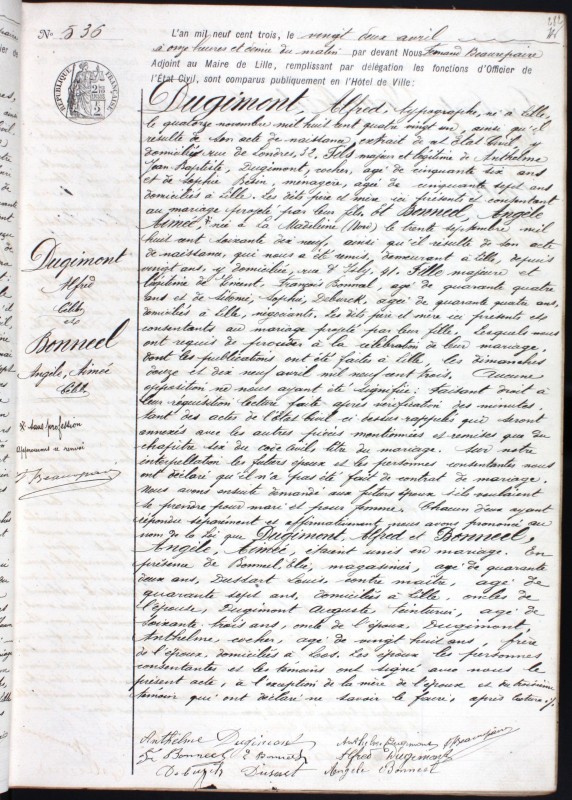 No 536
L'an mil neuf cent trois, le vingt deux avril
à onze heures et demie du matin par devant Nous Beaurepaire
Adjoint au Maire de Lille, remplissant par délégation les fonctions d'Officier de
l'État Civil, sont comparus publiquement en l'Hôtel de Ville:
Dugimont Alfred, typographe, né à Lille,
le quatorze novembre mil huit cent quatre vingt un, ainsi qu'il
résulte de son acte de naissance extrait de cet Etat Civil, y
domicilié rue de Londres, 52, Fils majeur et légitime de Anthelme
Jean Baptiste, Dugimont, cocher, agé de cinquante six ans
et de Sophie ménagère, agée de cinquante sept ans
domiciliés à Lille. Les dits père et mère ici présents et consentant
au mariage projeté par leur fils, et Bonneel, Angèle
Aimée née à La Madeleine (Nord) le trente septembre mil
huit cent soixante dix neuf, ainsi qu'il résulte de son acte
de naissance, qui nous a été remis, demeurant à Lille, depuis
vingt ans, y domiciliée, rue d'Isly, 41. Fille majeure et
légitime de Vincent, François Bonneel, agé de quarante quatre
ans et de Sophie, agée de quarante quatre ans,
domiciliés à Lille, négociants. Les dits père et mère ici présents et
consentants au mariage projeté par leur fille. Lesquels nous
ont requis de procéder à la célébration de leur mariage
dont les publications ont été faites à Lille, les dimanches
douze et dix neuf avril mil neuf cent trois. Aucune
opposition ne nous ayant été signifiée. Faisant droit à
leur réquisition lecture faite après vérification des minutes,
tant des actes de l'Etat Civil ci dessus rappelés qui seront
annexés avec les autres pièces mentionnées et remises que du
chapitre six du code civil, titre du mariage. Sur notre
interpellation les futurs époux et les personnes consentantes nous
ont déclaré qu'il n'a pas été fait de contrat de mariage.
Nous avons ensuite demandé aux futurs époux s'ils voulaient
se prendre pour mari et pour femme. Chacun d'eux ayant
répondu séparément et affirmativement, nous avons prononcé au
nom de la loi que Dugimont, Alfred et Bonneel,
Angèle, Aimée, étaient unis en mariage. En
présence de Bonneel Elie, magasinier, agé de quarante
deux ans, Dussart Louis, contre maître, agé de
quarante sept ans, domiciliés à Lille, oncles de
l'épouse, Dugimont Auguste teinturier, agé de
soixante trois ans, oncle de l'époux, Dugimont
Anthelme cocher, agé de vingt huit ans, frère
de l'époux, domiciliés à Loos. Les époux les personnes
consentantes et les témoins ont signé avec nous le
présent acte, à l'exception de la mère de l'époux et du troisième
témoin qui ont déclaré ne savoir le faire, après lecture.
Dugimont
Alfred
Célib
et
Bonneel
Angèle, Aimée
Célib
sans profession
approuvant le renvoi
Beaurepaire
RÉPUBLIQUE FRANÇAISE
Anthelme Dugimont
Dugimont
Beaurepaire
Bonneel E Bonneel
Alfred Dugimont
Dussart
Angèle Bonneel